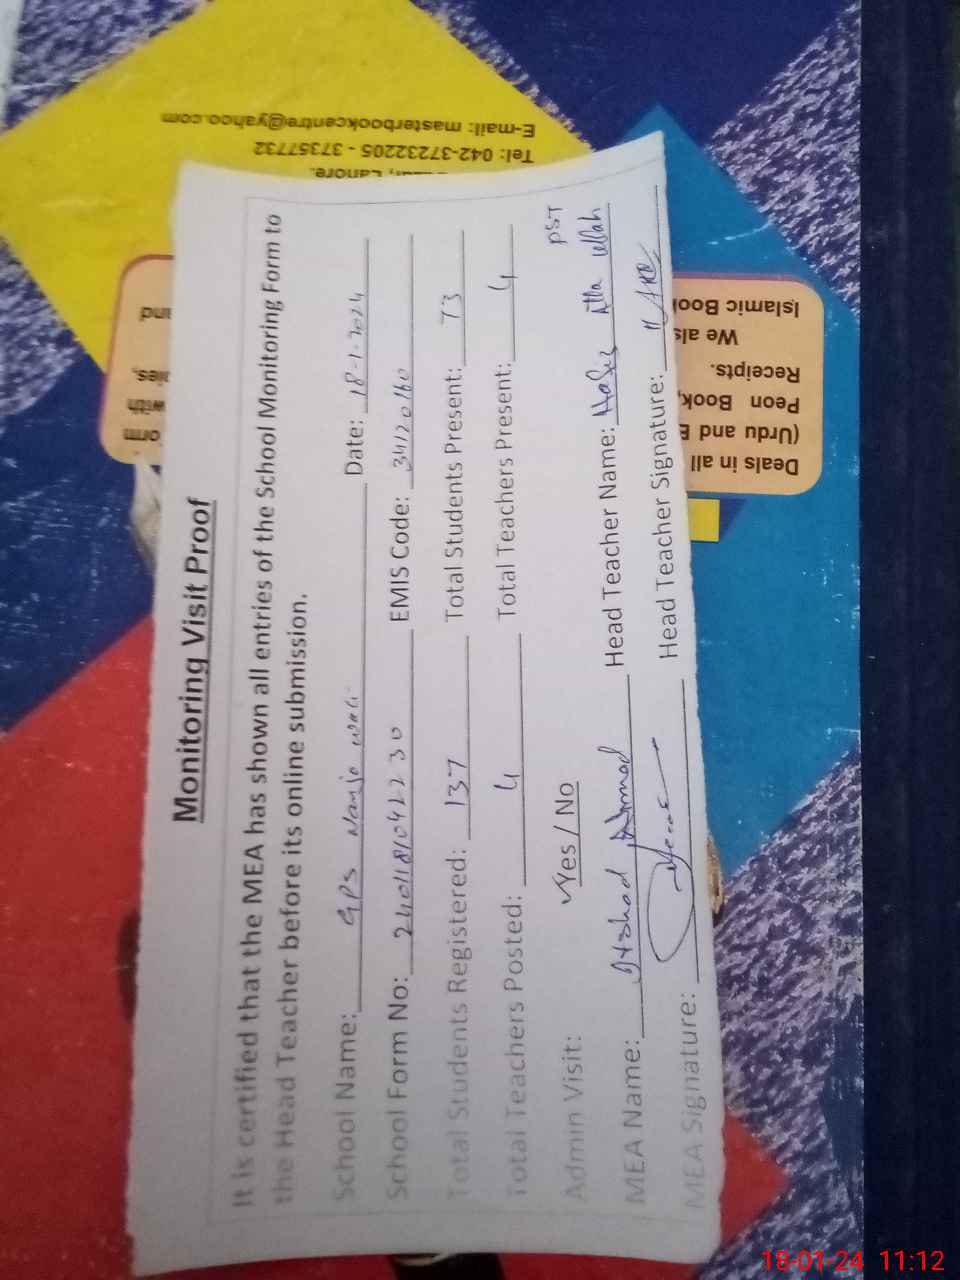 Monitoring Visit Proof
It is certified that the MEA has shown all entries of the School Monitoring Form to
the Head Teacher before its online submission.
School Name: GPS Nanjo wali Date: 18-1-2024
School Form No: 2401181042230 EMIS Code: 34120160
Total Students Registered: 137 Total Students Present: 73
Total Teachers Posted: 4 Total Teachers Present: 4
Admin Visit: ✓Yes / No PST
MEA Name: Irshad Ahmad Head Teacher Name: Hafiz Atta Ullah
MEA Signature: Head Teacher Signature:
Lahore.
Tel: 042-37232205 - 37357732
E-mail: masterbookcentre@yahoo.com
Deals in all
(Urdu and E
Peon Book,
Receipts.
We als
Islamic Book
orm
with
and
18-01-24 11:12